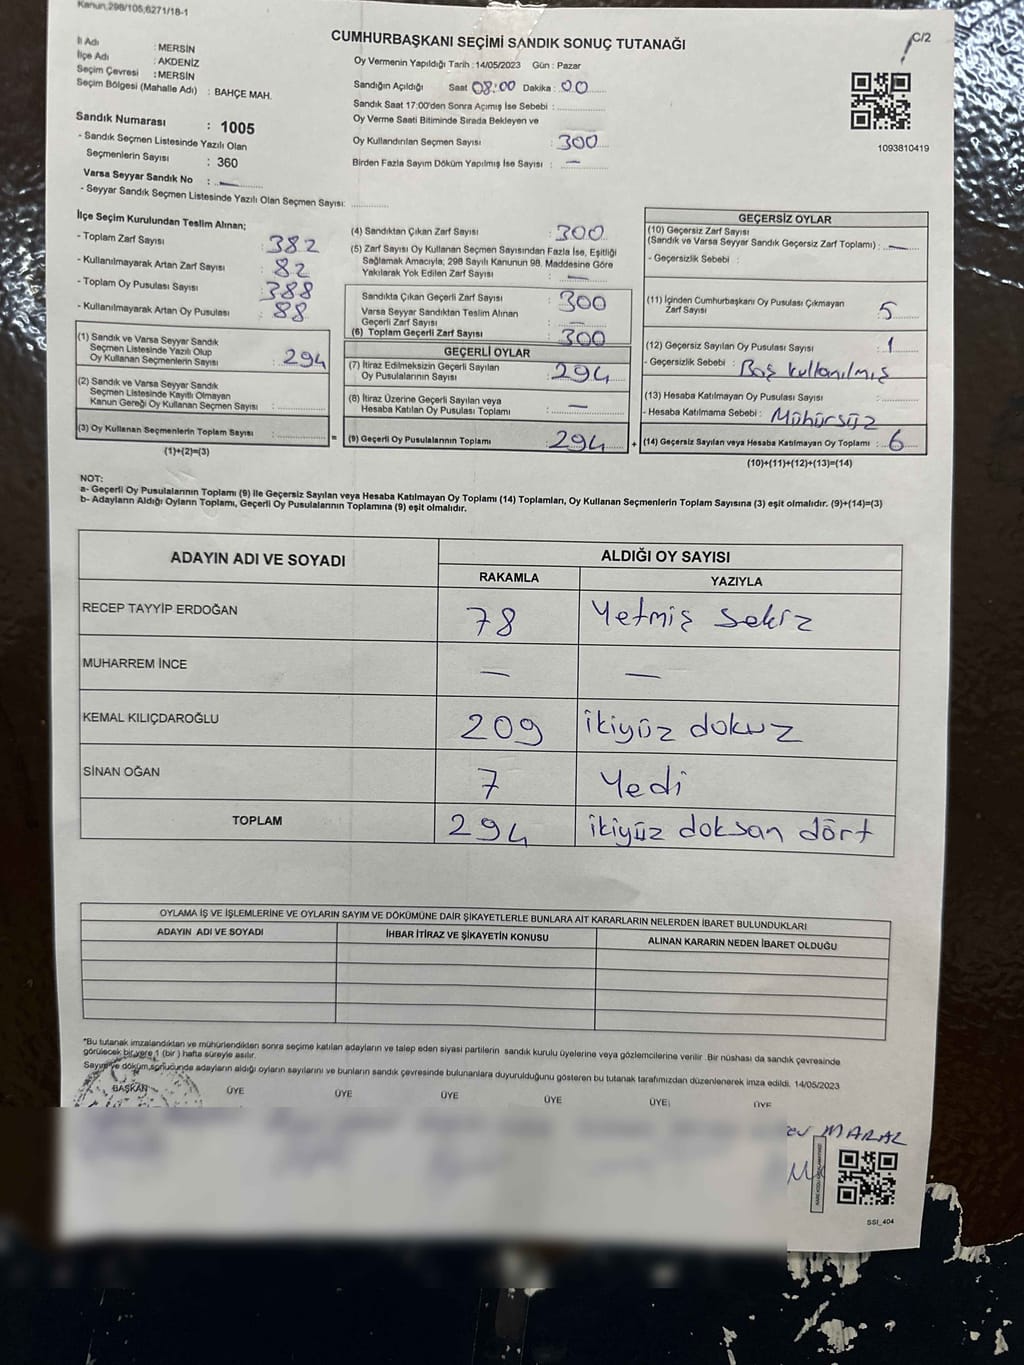 Kanun,298/105,6271/18-1
C/2
CUMHURBAŞKANI SEÇİMİ SANDIK SONUÇ TUTANAĞI
İl Adı : MERSİN
İlçe Adı : AKDENİZ
Seçim Çevresi : MERSİN
Seçim Bölgesi (Mahalle Adı) : BAHÇE MAH.
Sandık Numarası : 1005
- Sandık Seçmen Listesinde Yazılı Olan
Seçmenlerin Sayısı : 360
Varsa Seyyar Sandık No : —
- Seyyar Sandık Seçmen Listesinde Yazılı Olan Seçmen Sayısı:
Oy Vermenin Yapıldığı Tarih : 14/05/2023 Gün : Pazar
Sandığın Açıldığı Saat 08:00 Dakika : 00
Sandık Saat 17:00'den Sonra Açımış İse Sebebi :
Oy Verme Saati Bitiminde Sırada Bekleyen ve
Oy Kullandırılan Seçmen Sayısı : 300
Birden Fazla Sayım Döküm Yapılmış İse Sayısı : —
1093810419
İlçe Seçim Kurulundan Teslim Alınan;
- Toplam Zarf Sayısı : 382
- Kullanılmayarak Artan Zarf Sayısı : 82
- Toplam Oy Pusulası Sayısı : 388
- Kullanılmayarak Artan Oy Pusulası : 88
(1) Sandık ve Varsa Seyyar Sandık
Seçmen Listesinde Yazılı Olup
Oy Kullanan Seçmenlerin Sayısı : 294
(2) Sandık ve Varsa Seyyar Sandık
Seçmen Listesinde Kayıtlı Olmayan
Kanun Gereği Oy Kullanan Seçmen Sayısı :
(3) Oy Kullanan Seçmenlerin Toplam Sayısı :
(1)+(2)=(3)
(4) Sandıktan Çıkan Zarf Sayısı : 300
(5) Zarf Sayısı Oy Kullanan Seçmen Sayısından Fazla İse, Eşitliği
Sağlamak Amacıyla; 298 Sayılı Kanunun 98. Maddesine Göre
Yakılarak Yok Edilen Zarf Sayısı : —
Sandıkta Çıkan Geçerli Zarf Sayısı : 300
Varsa Seyyar Sandıktan Teslim Alınan
Geçerli Zarf Sayısı : —
(6) Toplam Geçerli Zarf Sayısı : 300
GEÇERLİ OYLAR
(7) İtiraz Edilmeksizin Geçerli Sayılan
Oy Pusulalarının Sayısı : 294
(8) İtiraz Üzerine Geçerli Sayılan veya
Hesaba Katılan Oy Pusulası Toplamı : —
= (9) Geçerli Oy Pusulalarının Toplamı : 294 +
GEÇERSİZ OYLAR
(10) Geçersiz Zarf Sayısı
(Sandık ve Varsa Seyyar Sandık Geçersiz Zarf Toplamı) : —
- Geçersizlik Sebebi :
(11) İçinden Cumhurbaşkanı Oy Pusulası Çıkmayan
Zarf Sayısı : 5
(12) Geçersiz Sayılan Oy Pusulası Sayısı : 1
- Geçersizlik Sebebi : Boş kullanılmış
(13) Hesaba Katılmayan Oy Pusulası Sayısı :
- Hesaba Katılmama Sebebi : Mühürsüz
(14) Geçersiz Sayılan veya Hesaba Katılmayan Oy Toplamı : 6
(10)+(11)+(12)+(13)=(14)
NOT:
a- Geçerli Oy Pusulalarının Toplamı (9) ile Geçersiz Sayılan veya Hesaba Katılmayan Oy Toplamı (14) Toplamları, Oy Kullanan Seçmenlerin Toplam Sayısına (3) eşit olmalıdır. (9)+(14)=(3)
b- Adayların Aldığı Oyların Toplamı, Geçerli Oy Pusulalarının Toplamına (9) eşit olmalıdır.
ADAYIN ADI VE SOYADI ALDIĞI OY SAYISI
RAKAMLA YAZIYLA
RECEP TAYYİP ERDOĞAN 78 Yetmiş sekiz
MUHARREM İNCE — —
KEMAL KILIÇDAROĞLU 209 ikiyüz dokuz
SİNAN OĞAN 7 Yedi
TOPLAM 294 ikiyüz doksan dört
OYLAMA İŞ VE İŞLEMLERİNE VE OYLARIN SAYIM VE DÖKÜMÜNE DAİR ŞİKAYETLERLE BUNLARA AİT KARARLARIN NELERDEN İBARET BULUNDUKLARI
ADAYIN ADI VE SOYADI İHBAR İTİRAZ VE ŞİKAYETİN KONUSU ALINAN KARARIN NEDEN İBARET OLDUĞU
*Bu tutanak imzalandıktan ve mühürlendikten sonra seçime katılan adayların ve talep eden siyasi partilerin sandık kurulu üyelerine veya gözlemcilerine verilir .Bir nüshası da sandık çevresinde
görülecek bir yere 1 (bir ) hafta süreyle asılır.
Sayım ve döküm sonucunda adayların aldığı oyların sayılarını ve bunların sandık çevresinde bulunanlara duyurulduğunu gösteren bu tutanak tarafımızdan düzenlenerek imza edildi. 14/05/2023
BAŞKAN ÜYE ÜYE ÜYE ÜYE ÜYE ÜYE
MARAL
SSI_404